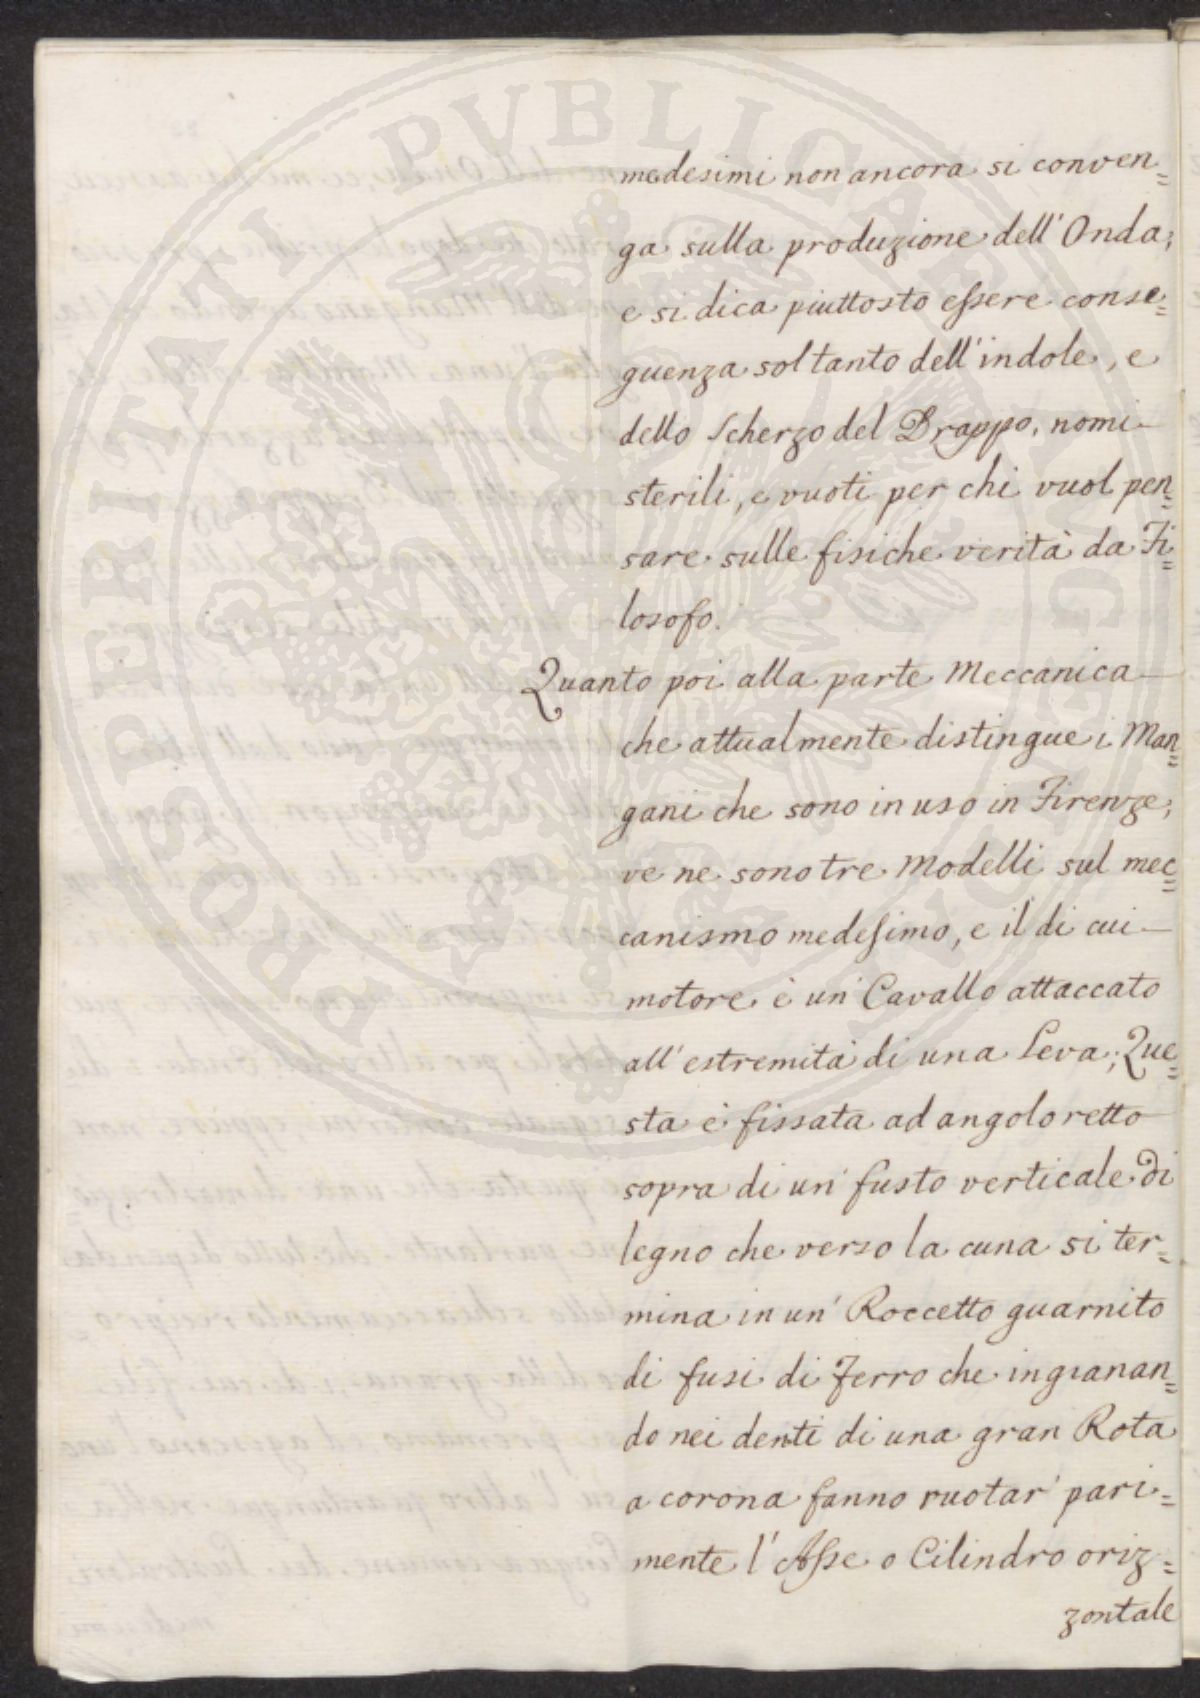 medesimi non ancora si conven=
ga sulla produzione dell' Onda;
e si dica piuttosto eſsere conse=
guenza soltanto dell' indole, e
dello Scherzo del Drappo, nomi
sterili, e vuoti per chi vuol pen=
sare sulle fisiche verità da Fi=
losofo.
Quanto poi alla parte Meccanica
che attualmente distingue i Man=
gani che sono in uso in Firenze,
ve ne sono tre Modelli sul mec=
canismo medeſimo, e il di cui
motore è un' Cavallo attaccato
all' estremità di una Leva; Que=
sta è fissata ad angolo retto
sopra di un' fusto verticale di
legno che verso la cuna si ter=
mina in un' Roccetto guarnito
di fusi di Ferro che ingranan=
do nei denti di una gran Rota
a corona fanno ruotar' pari=
mente l' Aſse o Cilindro oriz=
zontale
PROSPERITATI PUBLICAE